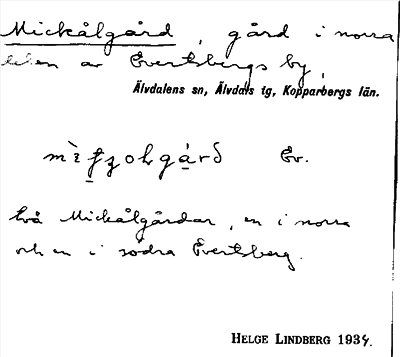 Mickålgård, gård i norra
delen av Evertsbergs by,
Älvdalens sn, Älvdals tg, Kopparbergs län.
Ev.
två Mickålgårdar, en i norra
och en i södra Evertsberg.
HELGE LINDBERG 1934.